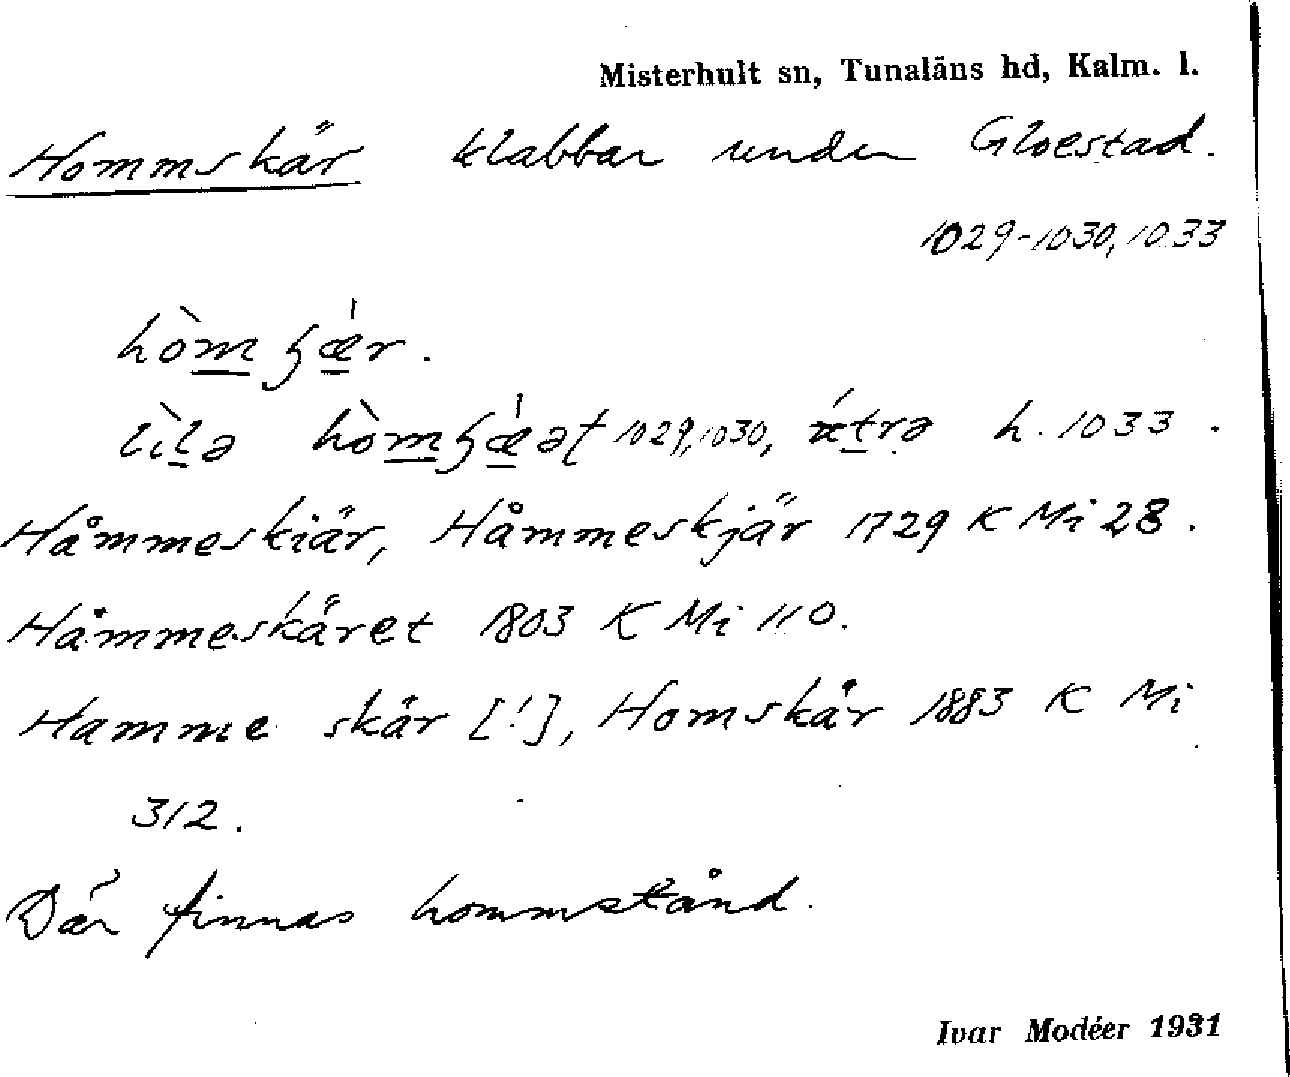 Misterhult sn, Tunaläns hd, Kalm. l.
Hommskär klabbar under Gloestad.
1029-1030, 1033
hòmʒǽr.
lìlə hòmʒǽət 1029, 1030, ú́trə h. 1033.
Håmmeskiär, Håmmeskjär 1729 K Mi 28.
Håmmeskäret 1803 K Mi 110.
Hamme skär [!], Homskär 1883 K Mi
312.
Där finnas hommstånd.
Ivar Modéer 1931